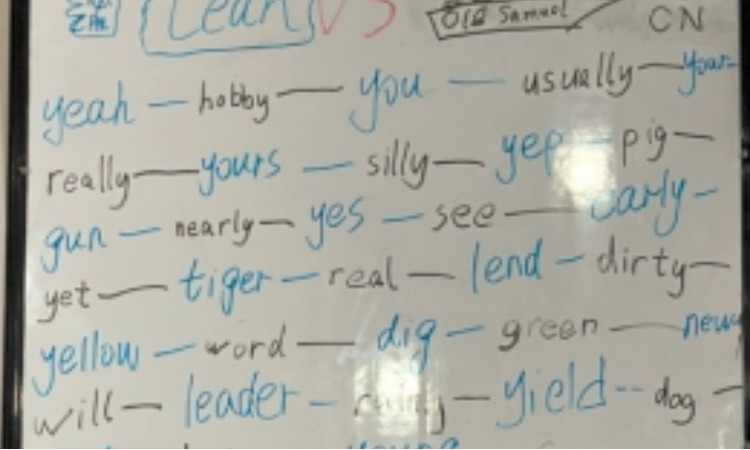 Leah VS Old Samuel CN
yeah — hobby — you — usually — your-
really — yours — silly — yep — pig —
gun — nearly — yes — see — early -
yet — tiger — real — lend — dirty —
yellow — word — dig — green — new
will — leader - — yield -- dog -